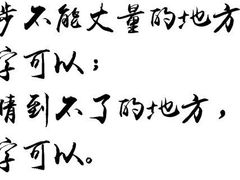 步不能丈量的地方
字可以；
睛到不了的地方，
字可以。